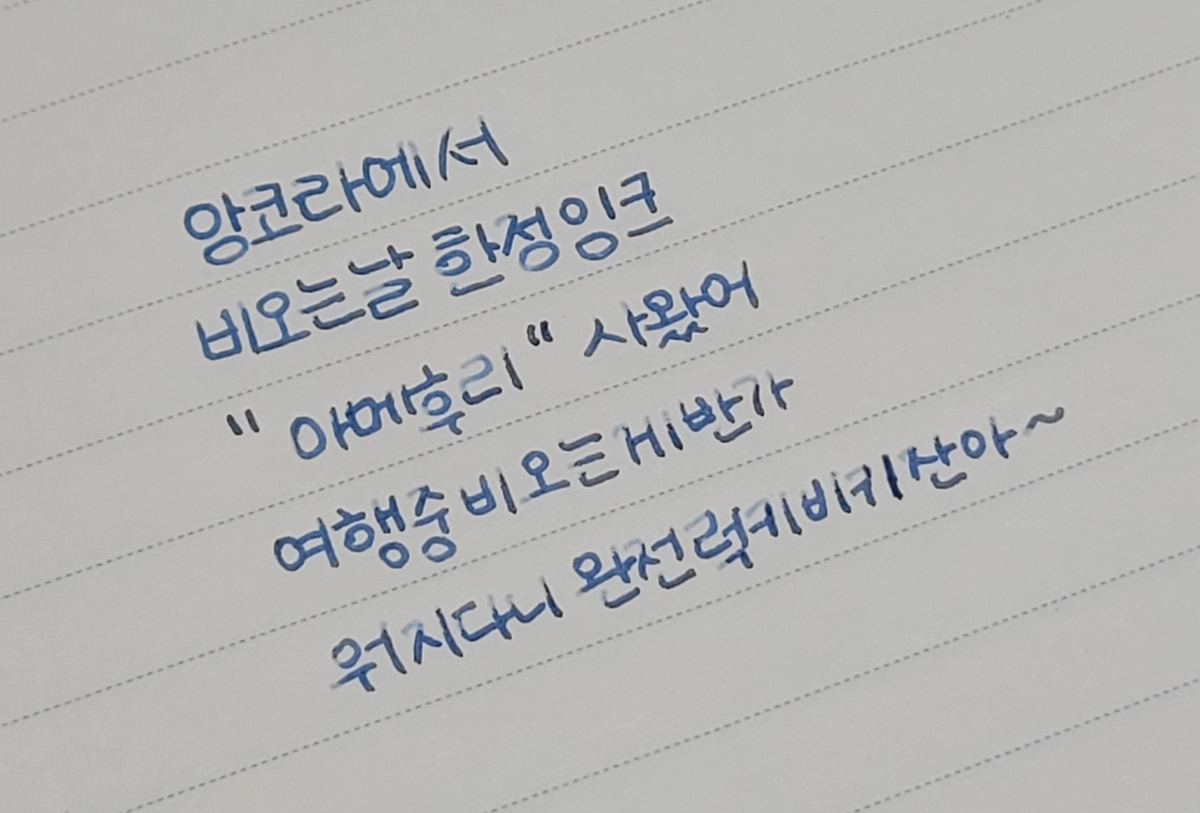 앙코라에서
비오는날 한정잉크
"아메후리" 사왔어
여행중비오는게반가
워지다니 완전럭키비키잔아~